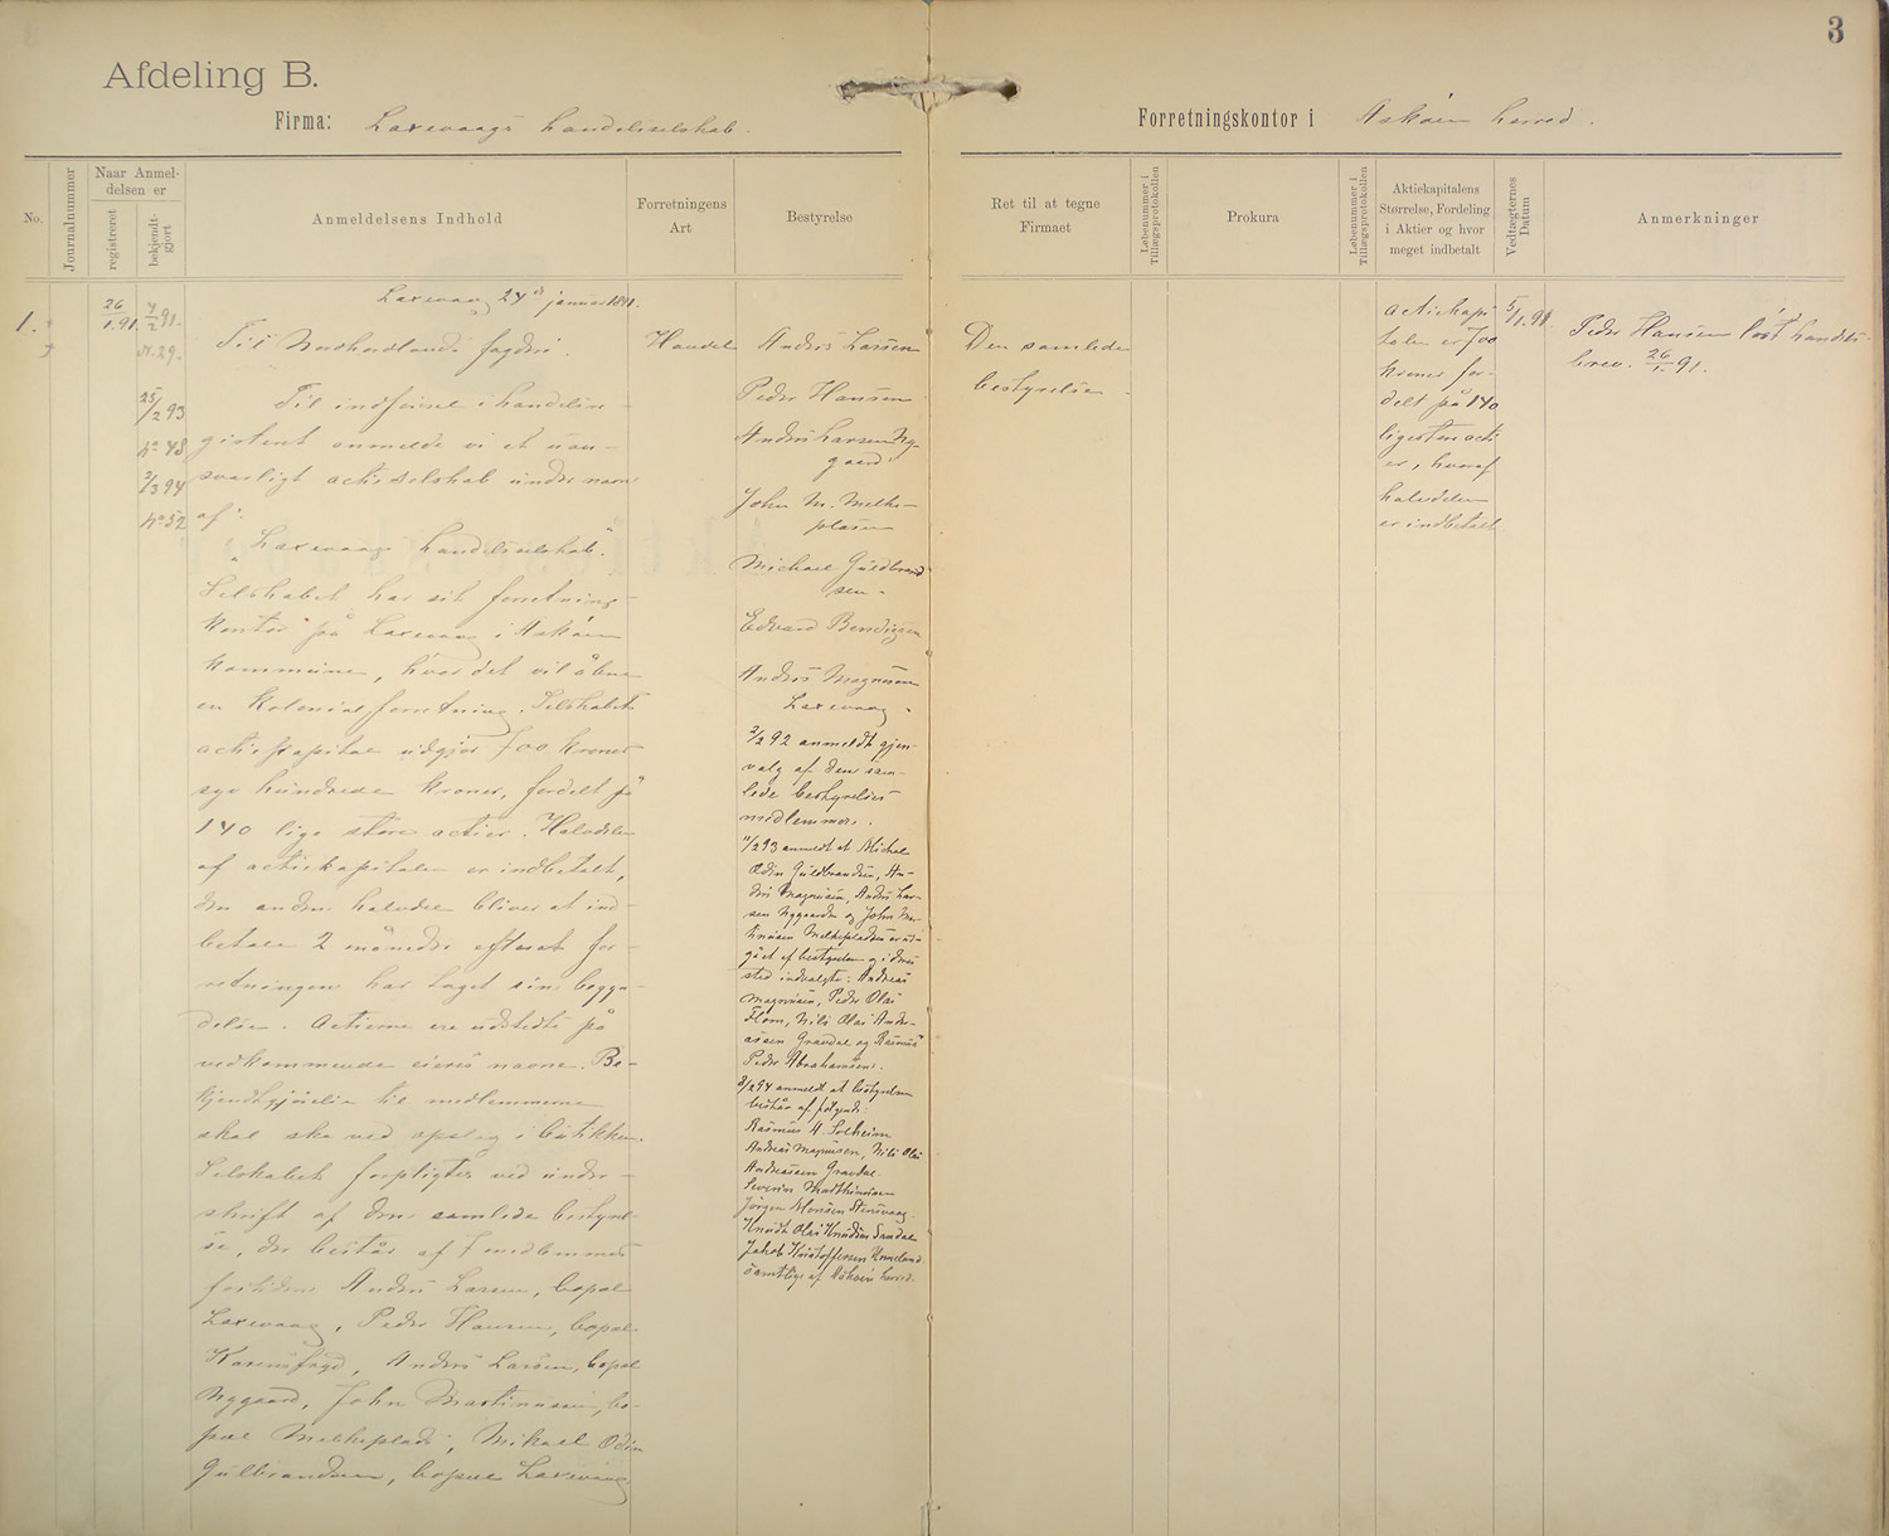 3
Afdeling B.
Firma: Laxevaags handelsselskab.
Forretningskontor i Askøen herred.
No.
Journalnummer
Naar Anmel-
delsen er
registreret
bekjendt-
gjort
Anmeldelsens Indhold
Forretningens
Art
Bestyrelse
Ret til at tegne
Firmaet
Løbenummer i
Tillægsprotokollen
Prokura
Løbenummer i
Tillægsprotokollen
Aktiekapitalens
Størrelse, Fordeling
i Aktier og hvor
meget indbetalt
Vedtægternes
Datum
Anmerkninger
1.
26/1.91.
4/2 91.
N. 29.
25/2 93
No 48
2/3 94
No 52
Laxevaag 24de januar 1891.
Til Nordhordlands fogderi.
Til indførsel i handelsre-
gisteret anmelde vi et uan-
svarligt actieselskab under navn
af:
"Laxevaags handelsselskab".
Selskabet har sit forretnings-
kontor på Laxevaag i Askøen
kommune, hvor det vil åbne
en kolonialforretning. Selskabets
actiekapital udgjør 700 kroner
syv hundrede kroner, fordelt på
140 lige store actier. Halvdelen
af actiekapitalen er indbetalt,
den anden halvdel bliver at ind-
betale 2 måneder efterat for-
retningen har taget sin begyn-
delse. Actierne ere udstedte på
vedkommende eieres navne. Be-
kjendtgjørelse til medlemmerne
skal ske ved opslag i butikken.
Selskabet forpligtes ved under-
skrift af den samlede bestyrel-
se, der består af 7 medlemmer
fortiden Anders Larsen, bopæl
Laxevaag, Peder Hansen, bopæl
Anders Larsen, bopæl
Nygaard, John Martinussen, bo-
pæl Melkeplads, Mikael Odin
Gulbrandsen, bopæl Laxevaag,
Handel
Anders Larsen
Peder Hansen
Anders Larsen Ny-
gaard.
John M. Melke-
plasen
Michael Guldbrand
sen.
Edvard Bendigsen
Anders Magnesen
Laxevaag.
2/2 92 anmeldt gjen-
valg af den sam-
lede bestyrelses
medlemmer.
11/2 93 anmeldt at Michael
Odin Guldbrandsen, An-
ders Magnusen, Anders Lar-
sen Nygaarden og John Mar-
tinusen Melkepladsen er ud-
gået af bestyrelsen og i deres
sted indvalgte: Andreas
Magnusen, Peder Olai
Flom, Nils Olai Andre-
assen Gravdal og Rasmus
Peder Abrahamsen.
3/2 94 anmeldt at bestyrelsen
består af følgende:
Rasmus H. Solheim
Andreas Magnusen, Nils Olai
Andreassen Gravdal.
Severin Mathinusen
Jørgen Monsen Stensvaag.
Knudt Olai Knudsen Sandal
Jakob Kristoffersen Unneland.
samtlige af Askøen herred.
Den samlede
bestyrelse.
Actiekapi
talen er 700
kroner for-
delt på 140
lige store acti
er, hvoraf
halvdelen
er indbetalt.
5/1.91.
Peder Hansen løst handels-
brev. 26/1.91.